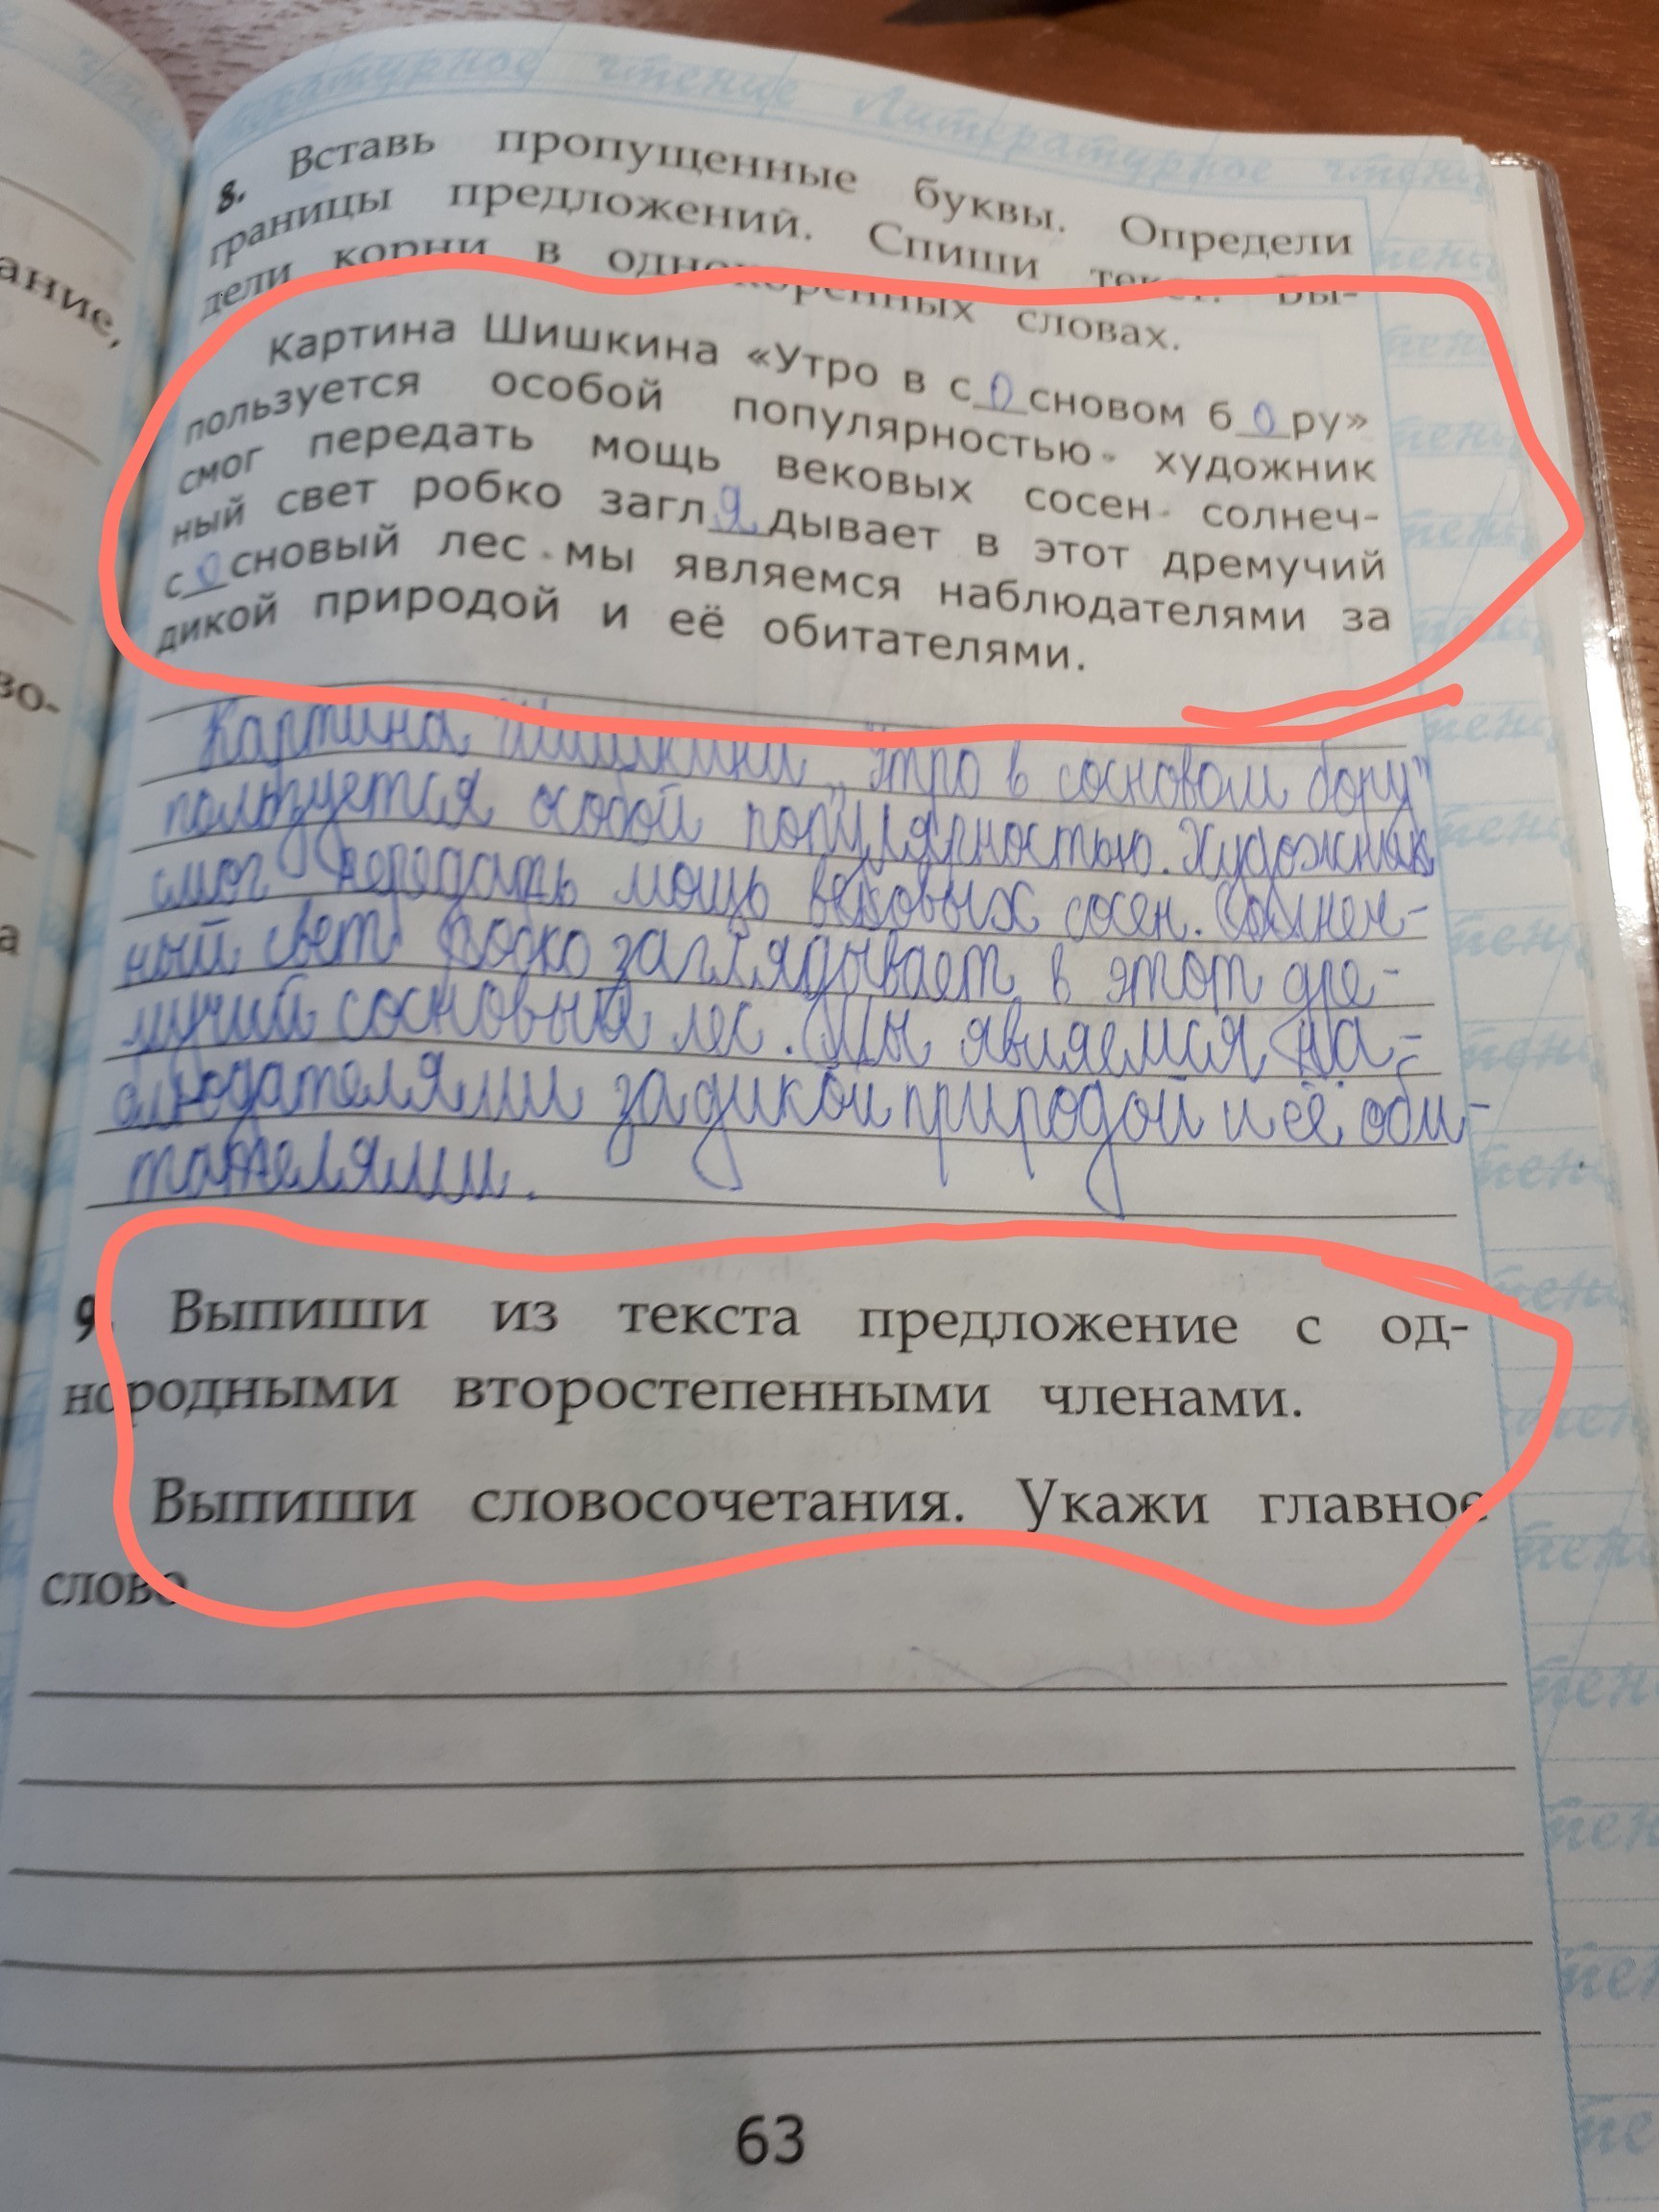 Литературное чтение Литературное чтени
8. Вставь пропущенные буквы. Определи
границы предложений. Спиши текст. Вы-
дели корни в однокоренных словах.
Картина Шишкина «Утро в с_о_сновом б_о_ру»
пользуется особой популярностью художник
смог передать мощь вековых сосен солнеч-
ный свет робко загл_я_дывает в этот дремучий
с_о_сновый лес мы являемся наблюдателями за
дикой природой и её обитателями.
Картина Шишкина „Утро в сосновом бору"
пользуется особой популярностью. Художник
смог передать мощь вековых сосен. Солнеч-
ный свет робко заглядывает в этот дре-
мучий сосновый лес. Мы являемся на-
блюдателями за дикой природой и её оби-
тателями.
9. Выпиши из текста предложение с од-
нородными второстепенными членами.
Выпиши словосочетания. Укажи главное
слово
63
ание,
во-
а